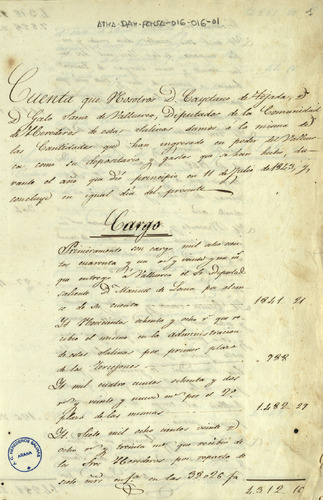 ATHA-DAH-FCHSA-016-016-01
Cuenta que Nosotros D. Cayetano de Tejada, y
D. Galo Sanz de Valluerca, Diputados de la Comunidad
de Herederos de estas Salinas damos a la misma de
las Cantidades que han ingresado en poder del Valluer
ca como su depositario y gastos que se han hecho du
rante el año que dió principio en 11 de Julio de 1843, y
concluye en igual dia del presente
Cargo
Primeramente son cargo mil ocho cien
tos cuarenta y un y veinte y un
que entregó a Valluerca el Sr. Diputado
saliente D. Manuel de por alcan
ce de su cuenta 1841 21
It. Novecientos ochenta y ocho que re
cibió el mismo en la administracion
de estas Salinas por primer plazo
de las 988
It. mil cuatro cientos ochenta y dos
y veinte y nueve por el 2º
plazo de las mismas 1.482 29
It. Siete mil ocho cientos veinte y
ocho y treinta que recibió de
los Sres. Herederos por reparto de
siete en las 38026 fa
4312 16
F.C. HEREDEROS SALINAS
AÑANA